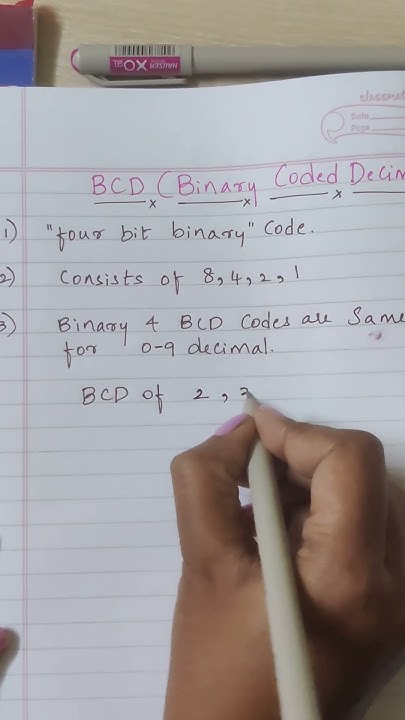 HAUSER XO GEL
classmate
Date
Page
BCD (Binary Coded Decim
1) "four bit binary" Code.
2) Consists of 8, 4, 2, 1
3) Binary & BCD Codes are Same
for 0-9 decimal.
BCD of 2 ,